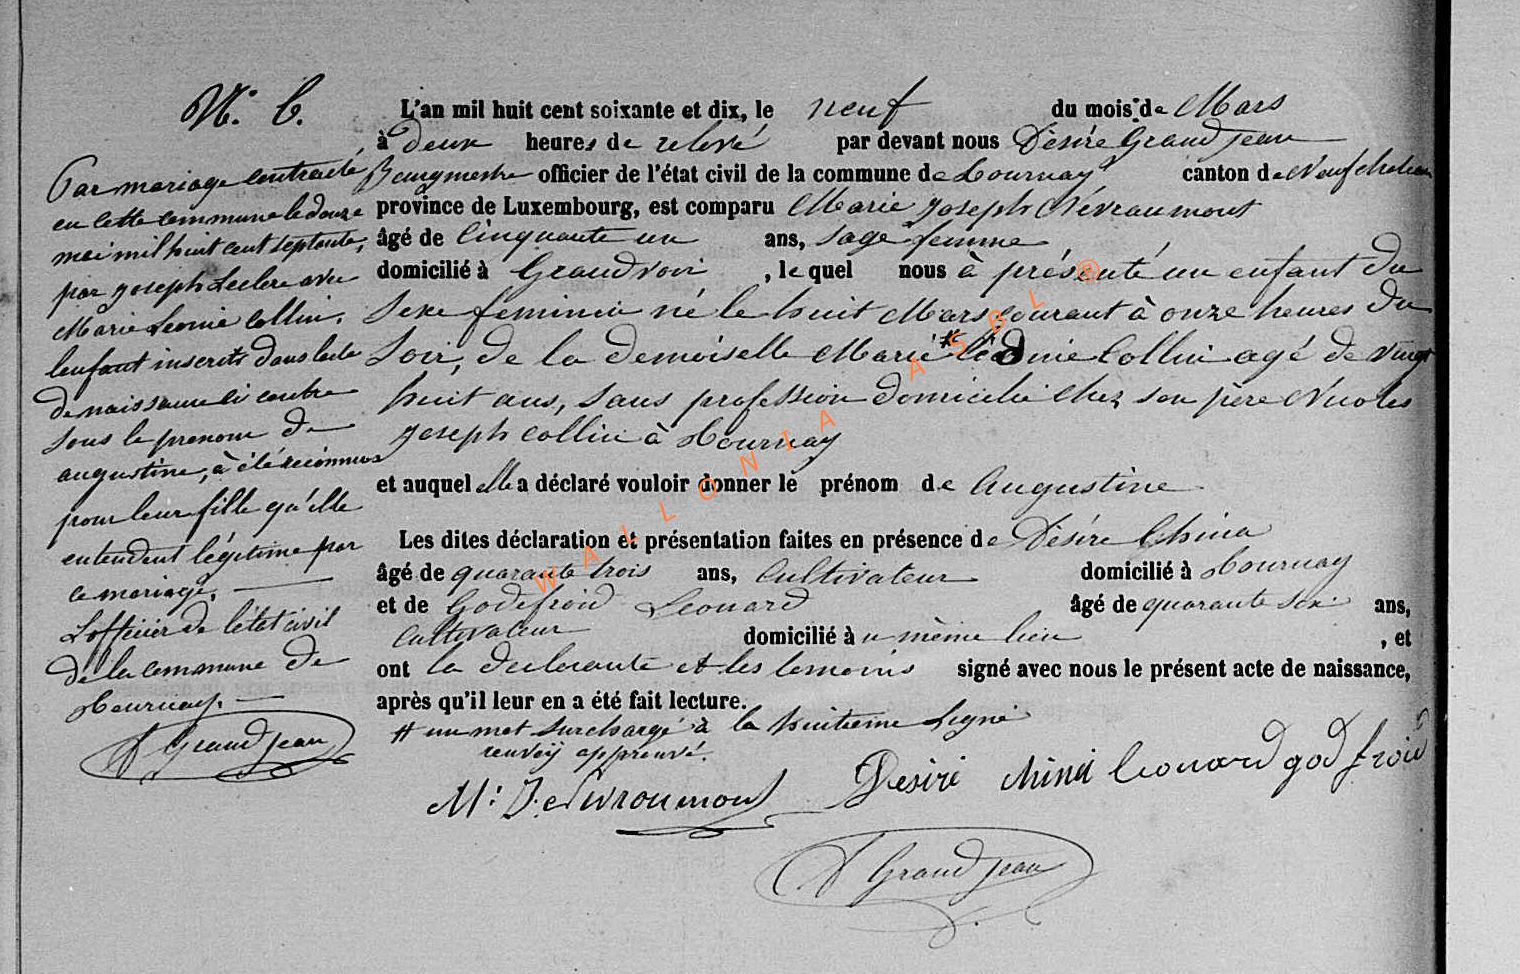 N.° 6.
Par mariage contracté
en cette commune le douze
mai mil huit cent septante,
par joseph Leclere avec
Marie Leonie Collin,
lenfant inscrits dans lacte
de naissance ci contre
sous le prenom de
augustine, à été reconnus
pour leur fille qu'ille
entendent légitime par
ce mariage.
L'officier de l'état civil
de la commune de
Tournay.
D Grandjean
L'an mil huit cent soixante et dix, le neuf du mois de Mars
à deux heures de relevé par devant nous Désiré Grandjean
Bourgmestre officier de l'état civil de la commune de Tournay canton de Neufchateau
province de Luxembourg, est comparu Marie Joseph Névraumont
âgé de Cinquante un ans, sage femme
domicilié à Grandvoir, lequel nous à présenté un enfant du
sexe feminin né le huit Mars courant à onze heures du
soir, de la demoiselle Marie # léonie Collin agé de vingt
huit ans, sans profession domicilié chez son père Nicolas
joseph Collin à Tournay
et auquel elle a déclaré vouloir donner le prénom de Augustine
Les dites déclaration et présentation faites en présence de Désiré China
âgé de quarante trois ans, Cultivateur domicilié à Tournay
et de Godefroid Leonard âgé de quarante six ans,
Cultivateur domicilié à u même lieu, et
ont la declarante et les temoins signé avec nous le présent acte de naissance,
après qu'il leur en a été fait lecture.
# un mot surchargé à la huitieme Ligne
renvoij approuvé.
M: J. Nevroumont Desiré Chinà leonard godfroid
D Grandjean
WALLONIA ASBL ®